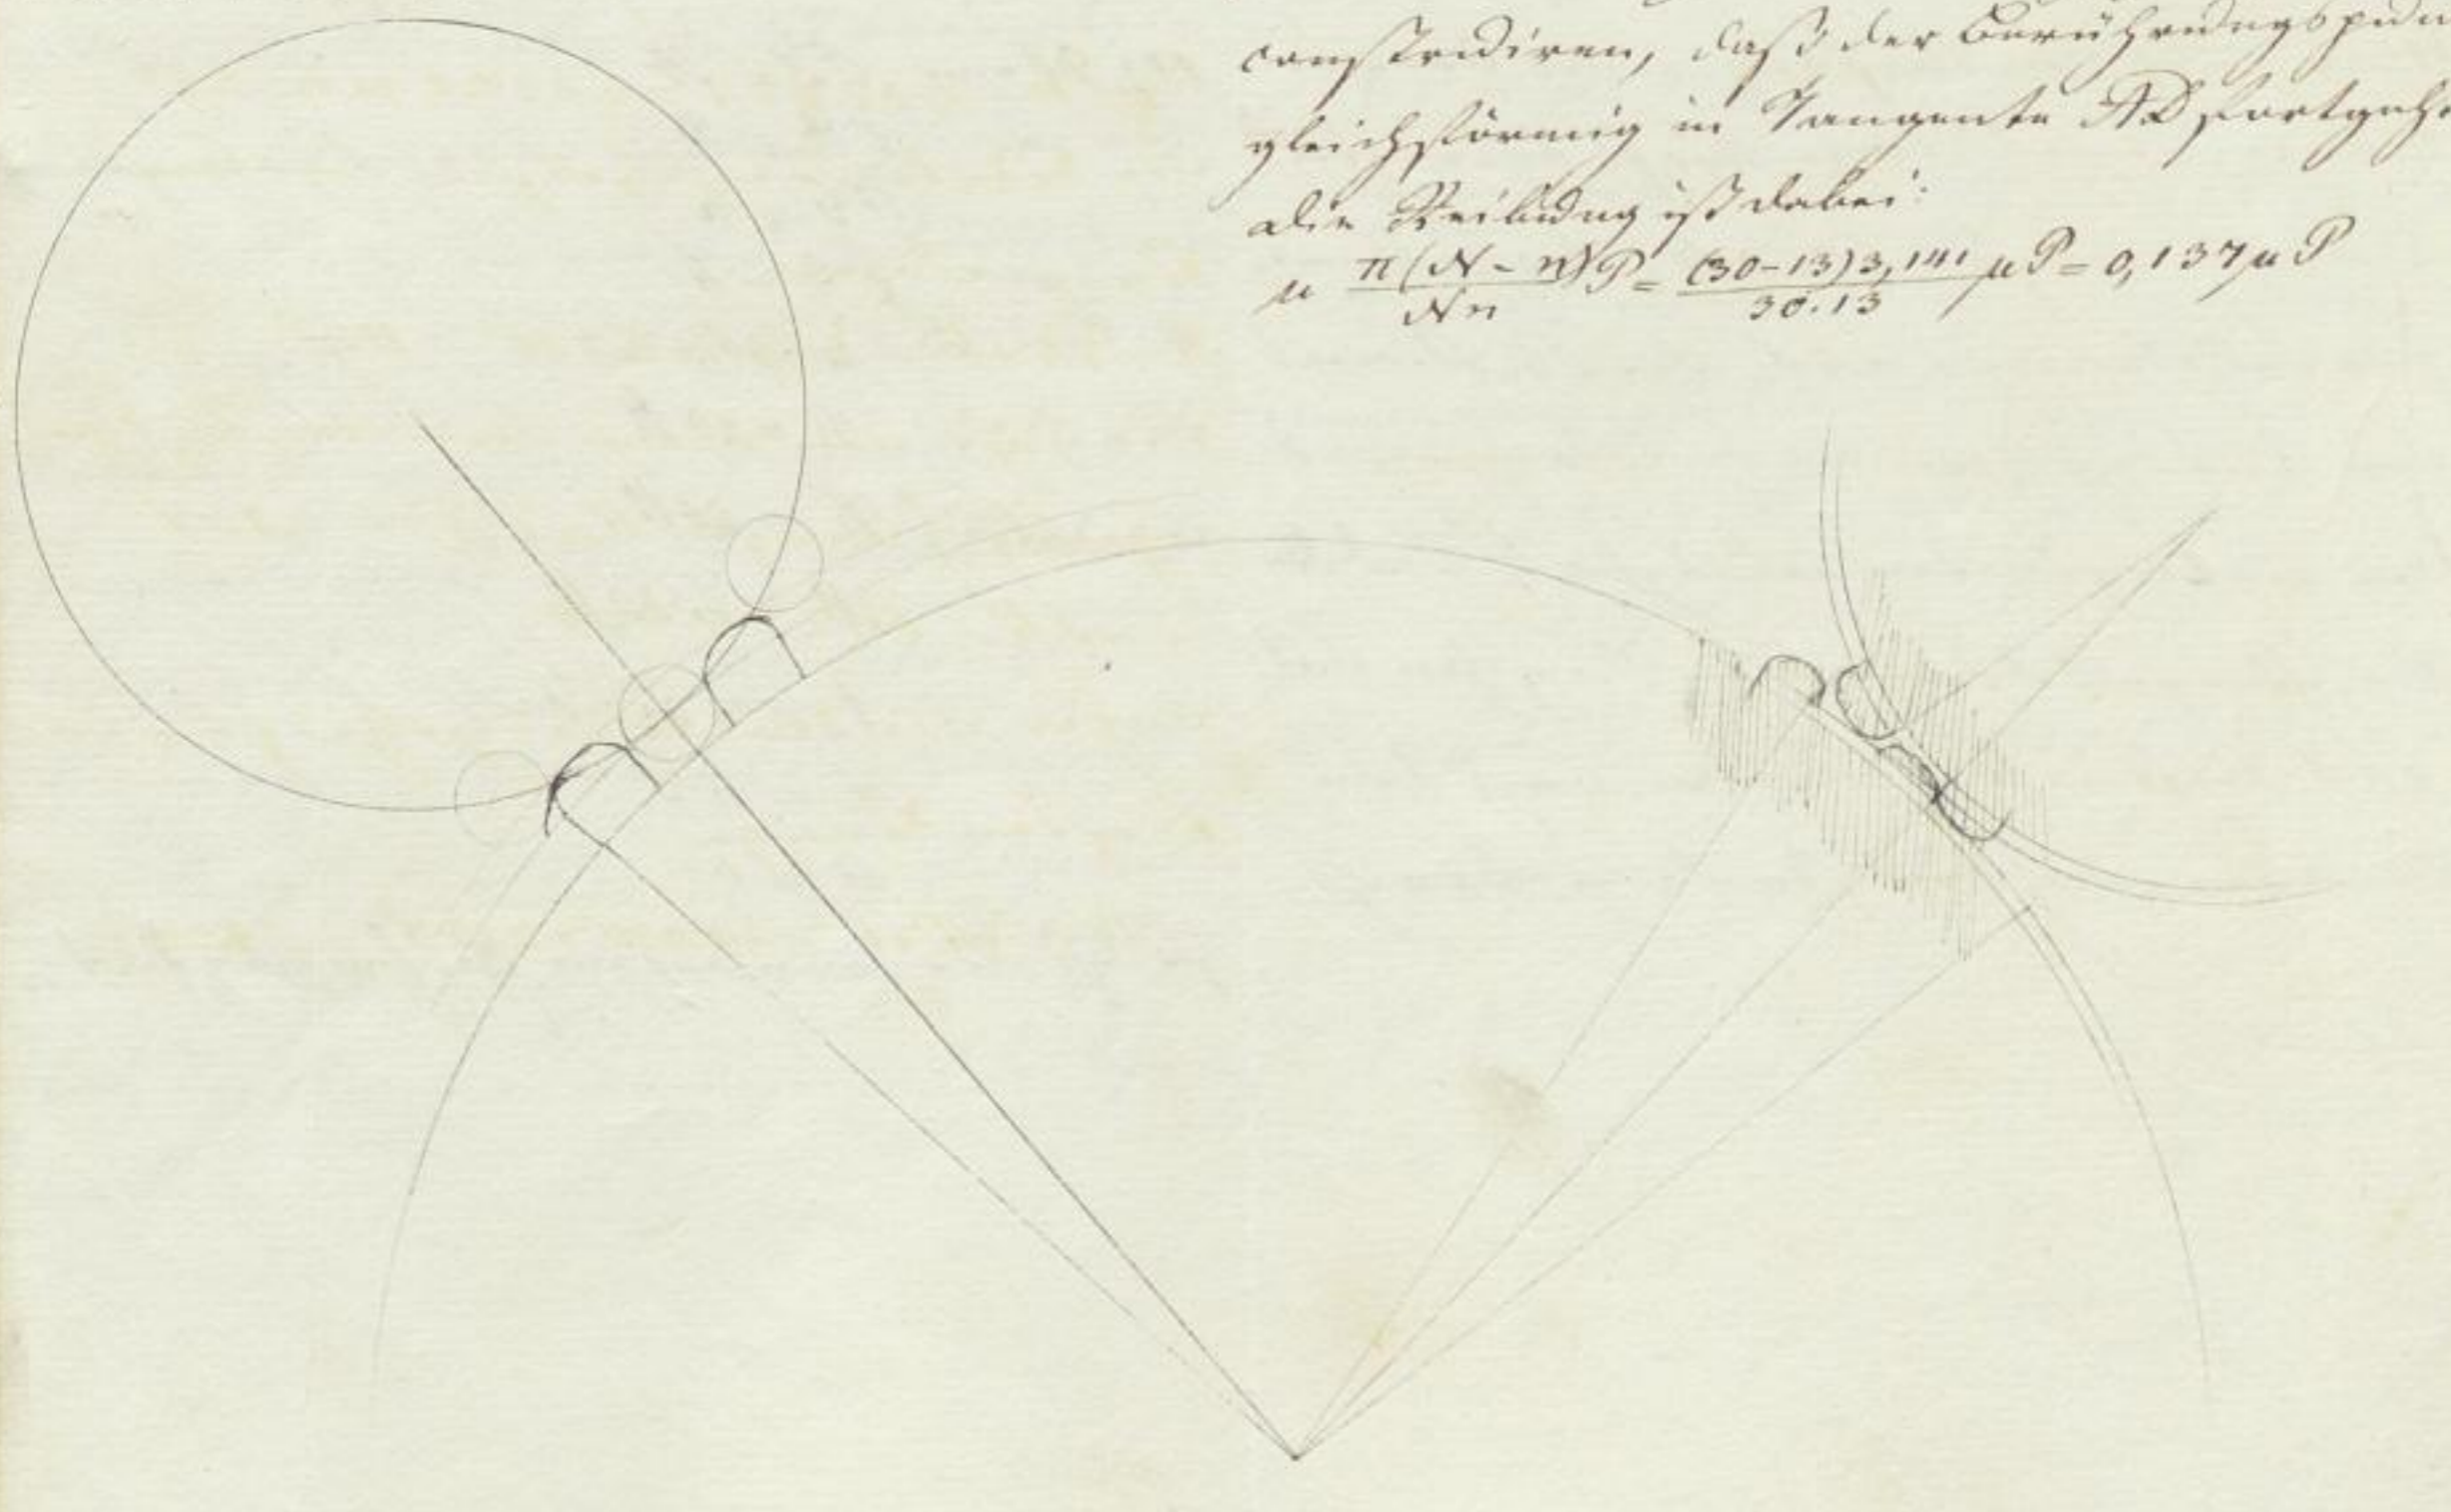 construiren, daß der Berührungspun
gleichförmig in Tangente AD fortgeht
die Reibung ist dabei:
μ π(N-n)P/Nn = (30-13)3,141/30.13 μP = 0,137μP